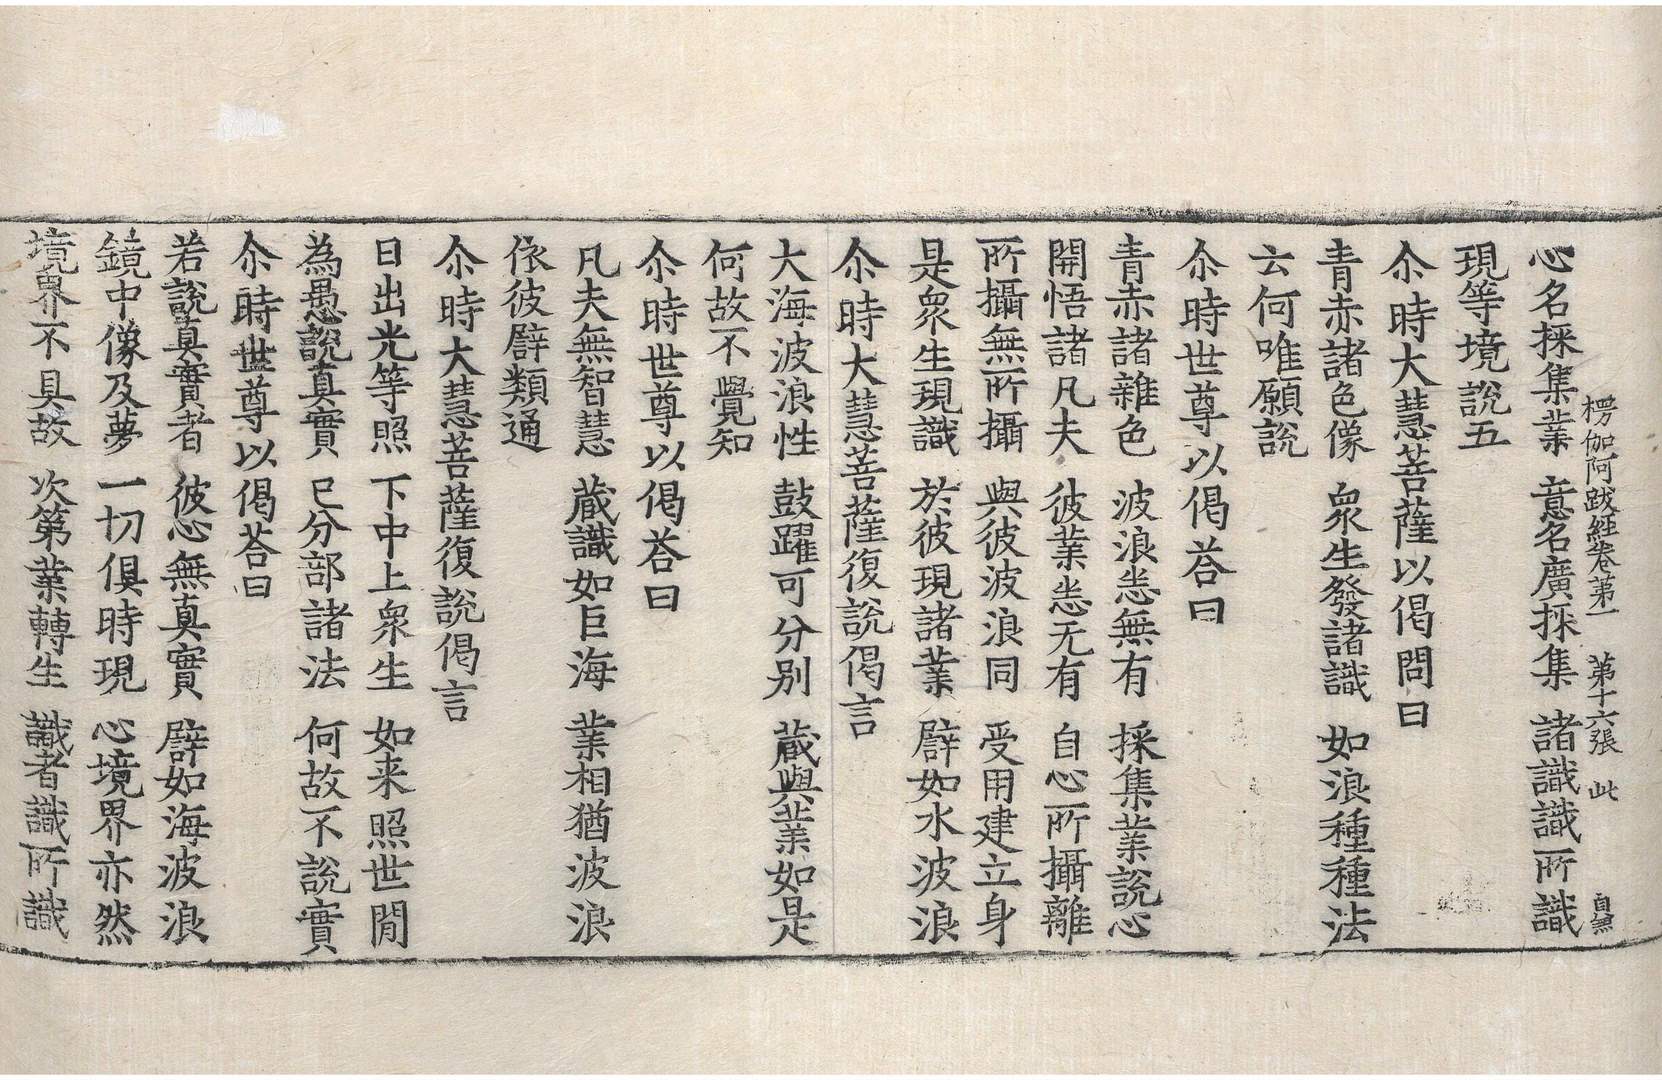 楞伽阿跋経卷第一　第十六張　此　自無
心名採集業　意名廣採集　諸識識所識
現等境說五
尒時大慧菩薩以偈問曰
青赤諸色像　衆生發諸識　如浪種種法
云何唯願說
尒時世尊以偈荅曰
青赤諸雜色　波浪悉無有　採集業說心
開悟諸凡夫　彼業悉无有　自心所攝離
所攝無所攝　與彼波浪同　受用建立身
是衆生現識　於彼現諸業　譬如水波浪
尒時大慧菩薩復說偈言
大海波浪性　鼓躍可分别　蔵與業如是
何故不覺知
尒時世尊以偈荅曰
凡夫無智慧　蔵識如巨海　業相猶波浪
依彼譬類通
尒時大慧菩薩復說偈言
日出光等照　下中上衆生　如来照世閒
為愚說真實　已分部諸法　何故不說實
尒時世尊以偈荅曰
若說真實者　彼心無真實　譬如海波浪
鏡中像及夢　一切俱時現　心境界亦然
境界不具故　次第業轉生　識者識所識